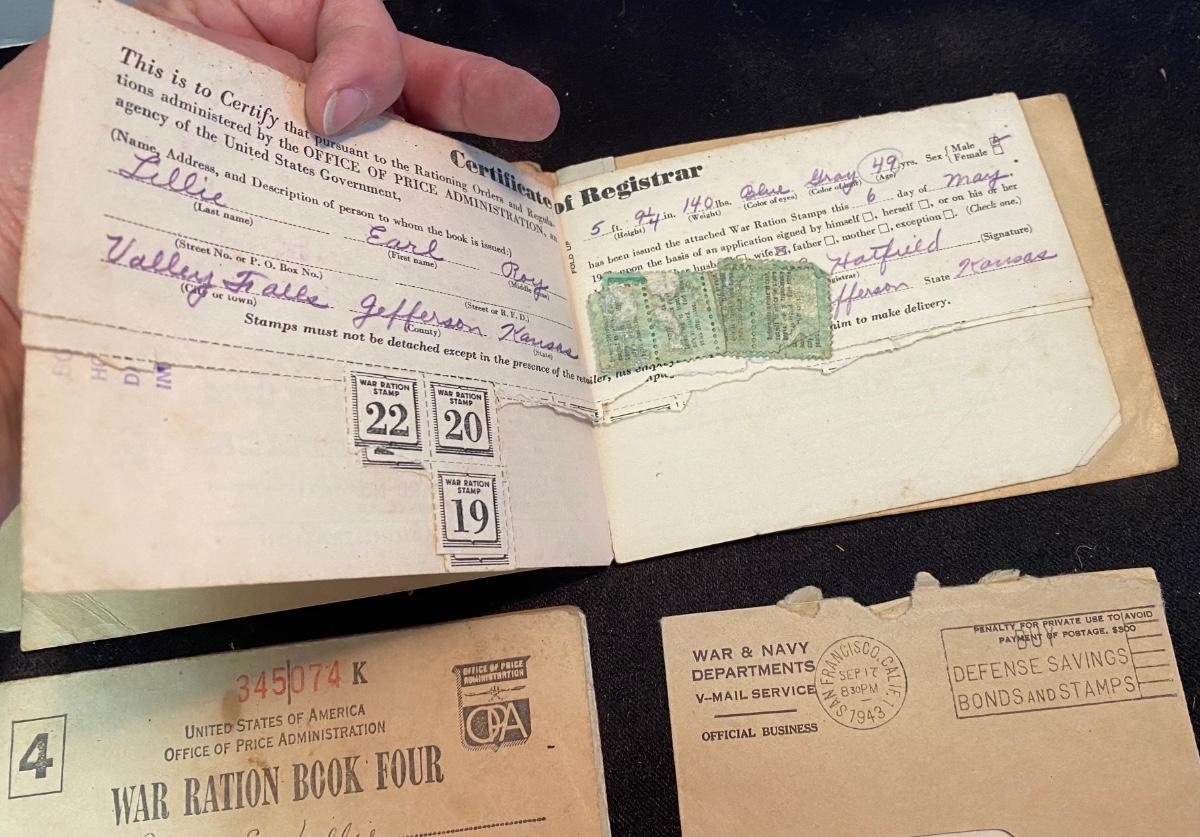 Certificate of Registrar
This is to Certify that pursuant to the Rationing Orders and Regula-
tions administered by the OFFICE OF PRICE ADMINISTRATION, an
agency of the United States Government,
(Name, Address, and Description of person to whom the book is issued:)
Lillie Earl Roy
(Last name) (First name) (Middle name)
(Street No. or P. O. Box No.) (Street or R. F. D.)
Valley Falls Jefferson Kansas
(City or town) (County) (State)
Stamps must not be detached except in the presence of the retailer, his employ
WAR RATION STAMP 22
WAR RATION STAMP 20
WAR RATION STAMP 19
FOLD UP
5 ft. 9 1/4 in. 140 lbs. Blue Gray 49 yrs. Sex Male Female
(Height) (Weight) (Color of eyes) (Color of hair) (Age)
has been issued the attached War Ration Stamps this 6 day of May
19 upon the basis of an application signed by himself, herself, or on his or her
husb wife, father, mother, exception. (Check one.)
Hatfield (Signature)
State Kansas
him to make delivery.
345074 K
UNITED STATES OF AMERICA
OFFICE OF PRICE ADMINISTRATION
4
WAR RATION BOOK FOUR
OFFICE OF PRICE
ADMINISTRATION
OPA
WAR & NAVY
DEPARTMENTS
V-MAIL SERVICE
OFFICIAL BUSINESS
SAN FRANCISCO, CALIF. 1
SEP 17
830PM
1943
PENALTY FOR PRIVATE USE TO AVOID
PAYMENT OF POSTAGE, $300
DEFENSE SAVINGS
BONDS AND STAMPS